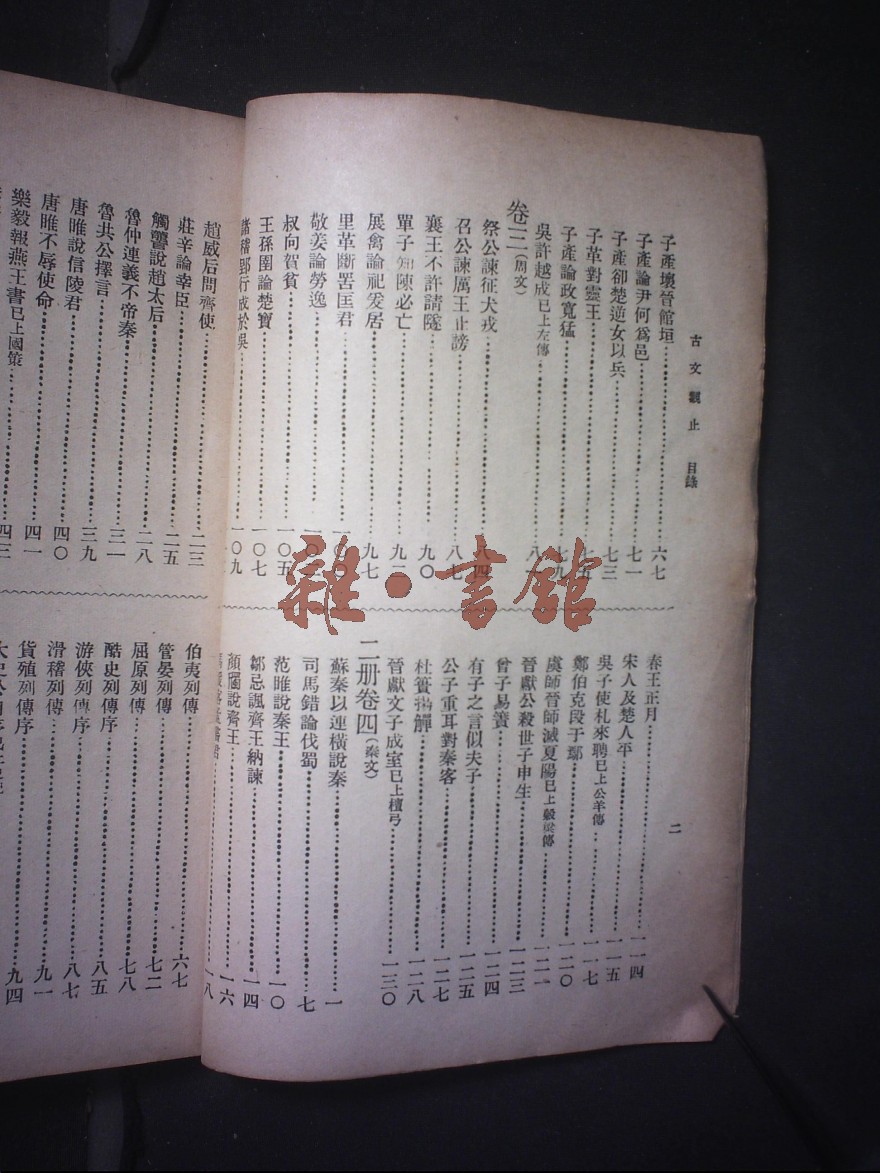 古文觀止 目錄
二
子產壞晉館垣 六七
子產論尹何爲邑 七一
子產卻楚逆女以兵 七三
子革對靈王
子產論政寬猛 七九
吳許越成已上左傳 八一
卷三(周文)
祭公諫征犬戎 八四
召公諫厲王止謗 八七
襄王不許請隧 九〇
單子知陳必亡 九二
展禽論祀爰居 九七
里革斷罟匡君 一〇〇
敬姜論勞逸
叔向賀貧 一〇五
王孫圉論楚寶 一〇七
諸稽郢行成於吳 一〇九
春王正月 一一四
宋人及楚人平 一一五
吳子使札來聘已上公羊傳 一一七
鄭伯克段于鄢 一二〇
虞師晉師滅夏陽已上穀梁傳 一二一
晉獻公殺世子申生 一二三
曾子易簀 一二四
有子之言似夫子 一二五
公子重耳對秦客 一二七
杜蕢揚觶 一二八
晉獻文子成室已上檀弓 一三〇
二册卷四(秦文)
蘇秦以連橫說秦 一
司馬錯論伐蜀 七
范睢說秦王 一〇
鄒忌諷齊王納諫 一四
顏斶說齊王 一六
一八
趙威后問齊使 二三
莊辛論幸臣 二五
觸讋說趙太后 二八
魯仲連義不帝秦 三一
魯共公擇言 三九
唐睢說信陵君 四〇
唐睢不辱使命 四一
樂毅報燕王書已上國策 四三
伯夷列傳 六七
管晏列傳 七二
屈原列傳 七八
酷史列傳序 八五
游俠列傳序 八七
滑稽列傳 九一
貨殖列傳序 九四
雜·書館